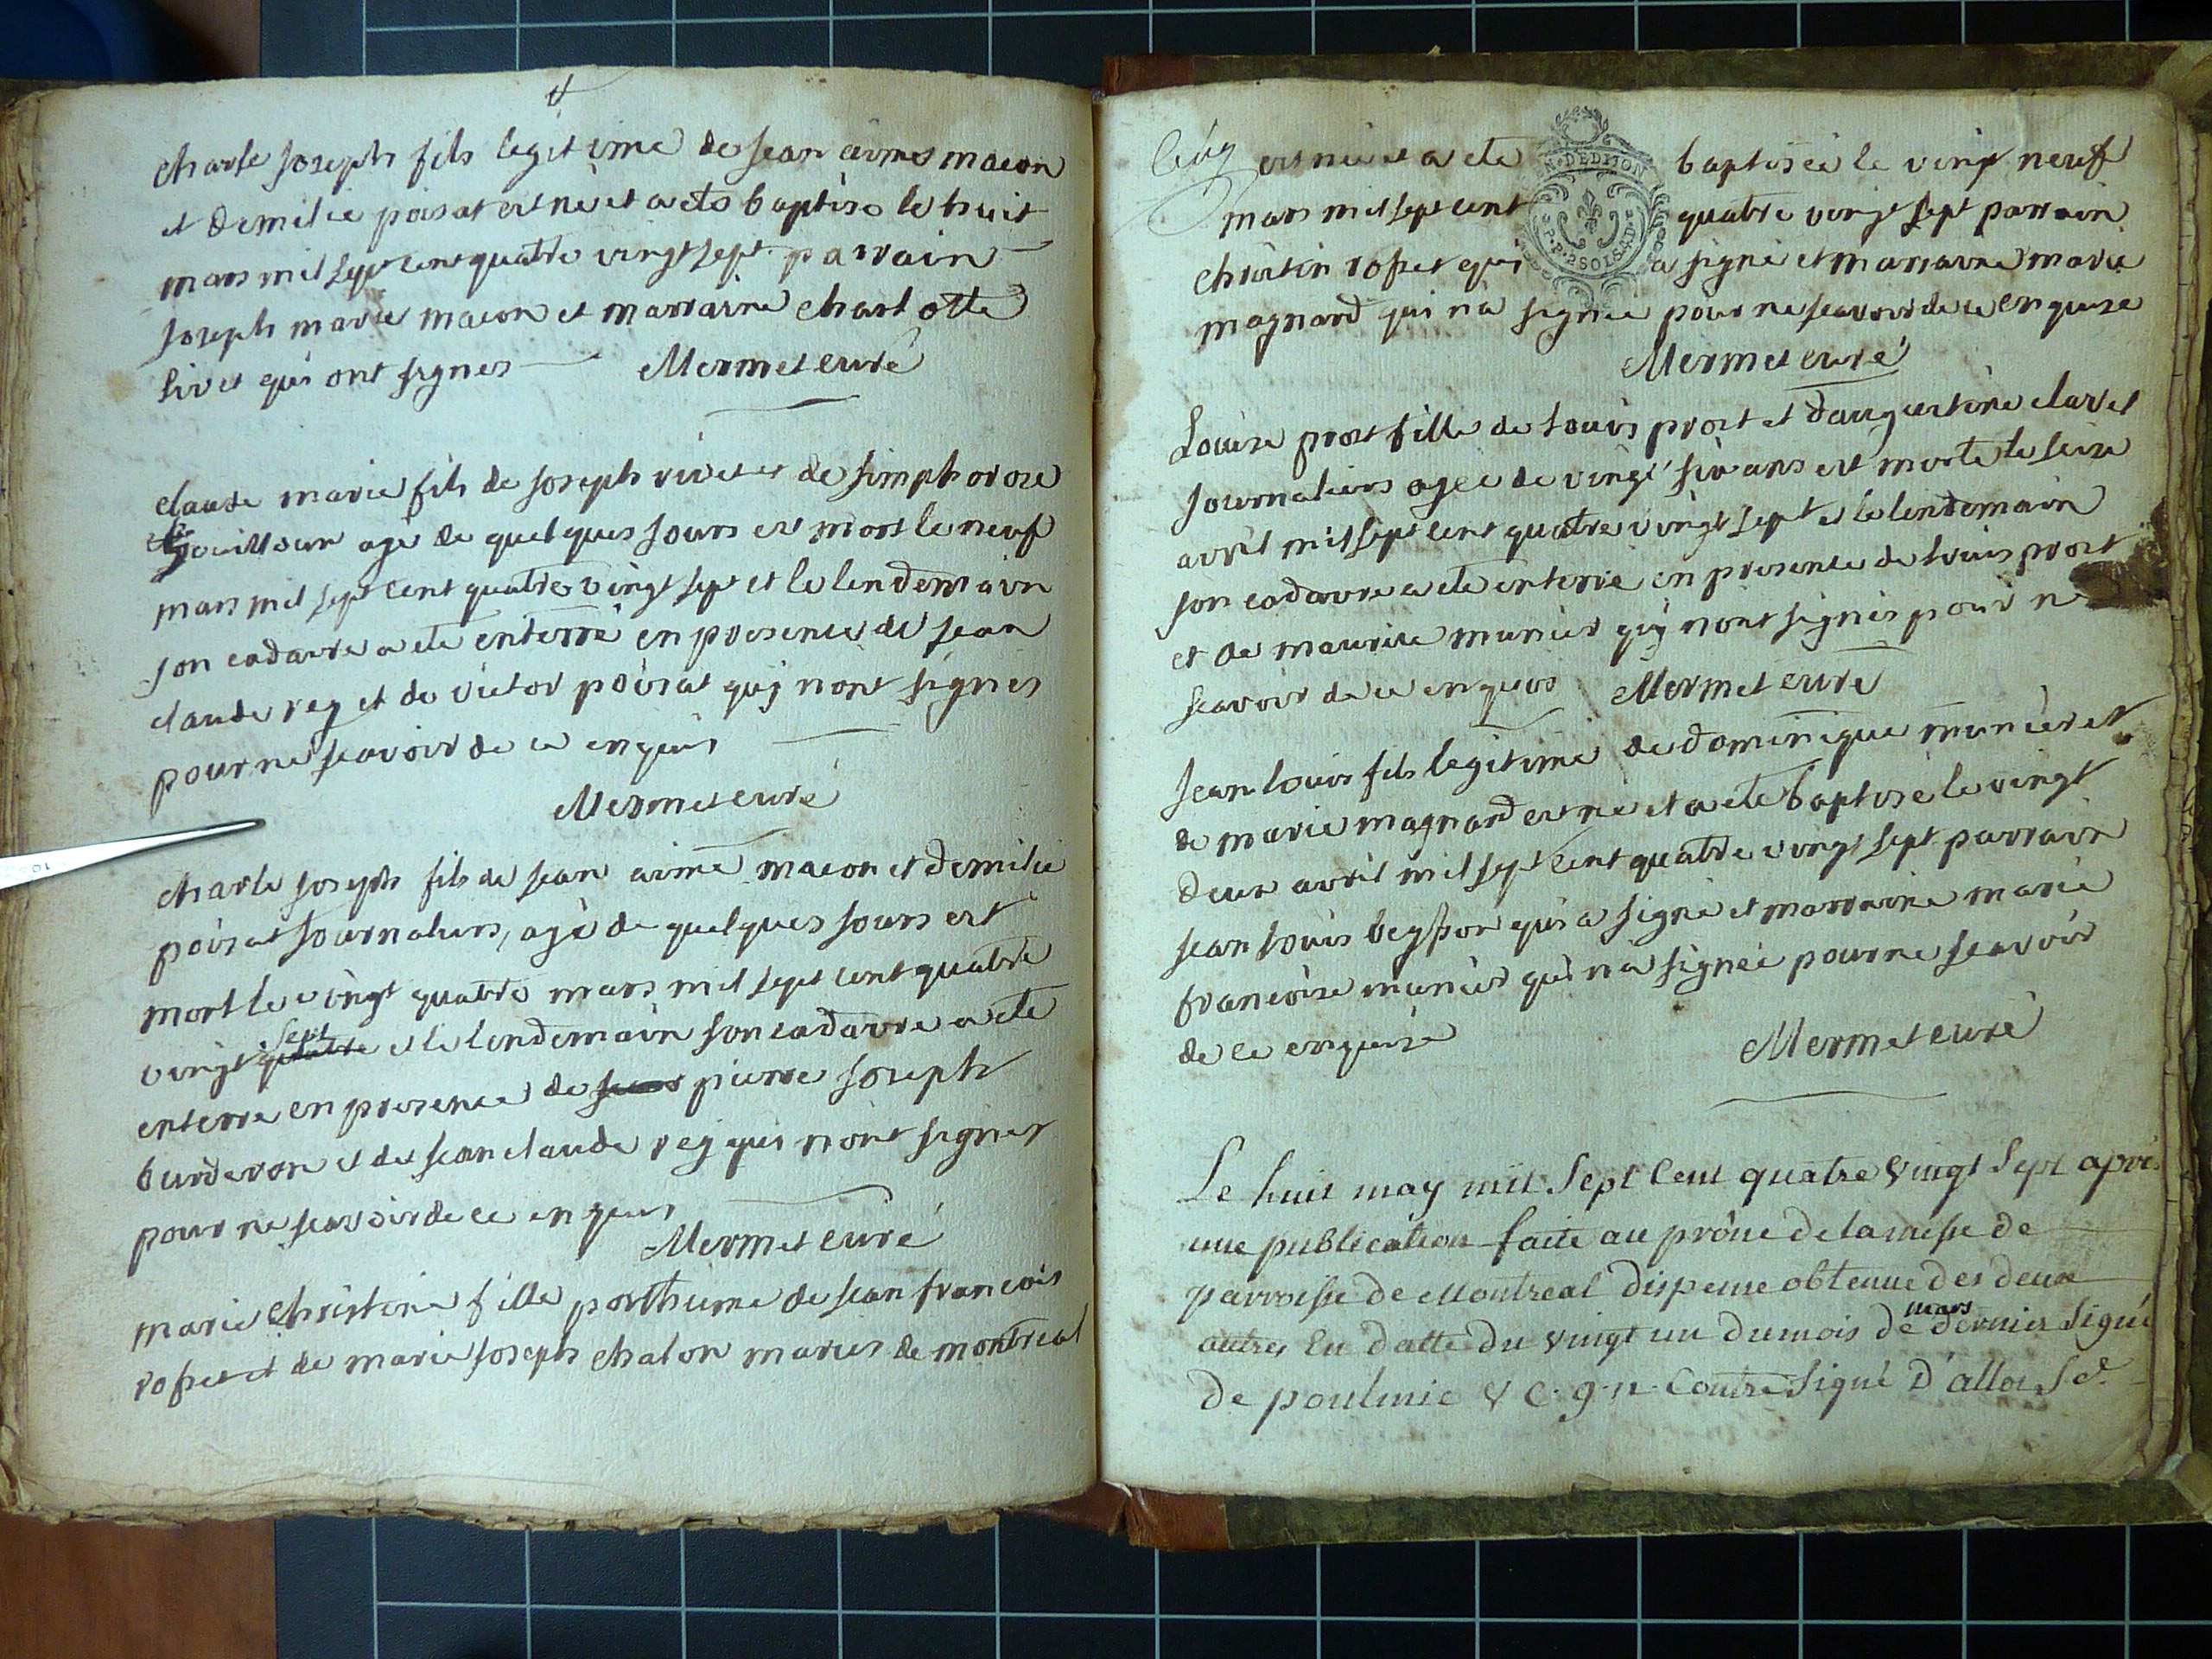 charle joseph fils legitime de jean aimé macon
et demilie poisat est né et a eté baptisé le huit
mars mil sept cent quatre vingt sept parrain
joseph marie macon et marraine charlotte
livet qui ont signes Mermet curé
claude marie fils de joseph rivet et de simphorose
gouilloux agé de quelques jours est mort le neuf
mars mil sept cent quatre vingt sept et le lendemain
son cadavre a eté enterré en presence de jean
claude rey et de victor poisat quj nont signés
pour ne scavoir de ce enquis
Mermet curé
charle joseph fils de jean aimé macon et demilie
poisat journaliers, agé de quelques jours est
mort le vingt quatre mars mil sept cent quatre
vingt quatre sept et le lendemain son cadavre a eté
enterré en presence de jean pierre joseph
burderon et de jean claude rey qui nont signes
pour ne scavoir de ce enquis
Mermet curé
marie christine fille posthume de jean francois
rosset et de marie joseph chalon maries de montreal
est née et a eté baptisée le vingt neuf
mars mil sept cent quatre vingt sept parrain
christin rosset qui a signé et marraine marie
magnard qui na signée pour ne scavoir de ce enquise
N. DE DIJON
P.P. 2 SOLS 4 D
Mermet curé
Louise prost fille de Louis prost et daugustine clavet
journaliers agée de vingt six ans est morte le seize
avril mil sept cent quatre vingt sept et le lendemain
son cadavre a eté enterré en presence de Louis prost
et de maurice munier quj nont signés pour n
scavoir de ce enquis Mermet curé
jean louis fils legitime de dominique munier et
de marie magnard est né et a eté baptisé le vingt
deux avril mil sept cent quatre vingt sept parrain
jean louis beysson qui a signé et marraine marie
francoise munier qui na signée pour ne scavoir
de ce enquise
Mermet curé
Le huit may mil Sept Cent quatre vingt Sept après
une publication faite au prône de la messe de
parroisse de Montreal dispense obtenue des deux
autres En datte du vingt un du mois de mars dernier Signé
De poulmic V C. g. n. Contre Signé D'allois Se